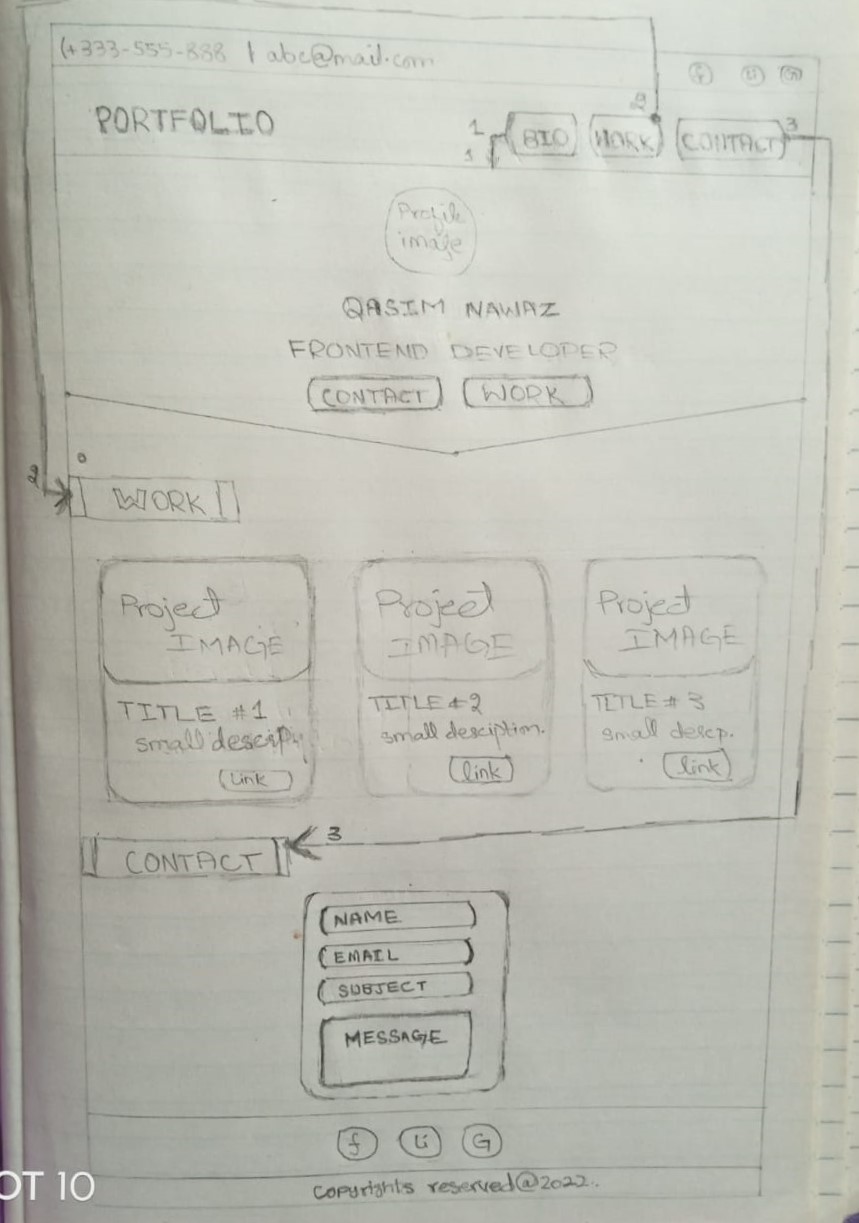 (+333-555-888 | abc@mail.com
f Li G
PORTFOLIO
1 BIO 2 WORK CONTACT 3
1
Profile
image
QASIM NAWAZ
FRONTEND DEVELOPER
CONTACT WORK
2
WORK
Project
IMAGE
TITLE #1
small descrip
Link
Project
IMAGE
TITLE #2
small desciption.
link
Project
IMAGE
TITLE # 3
small descp.
link
CONTACT 3
NAME
EMAIL
SUBJECT
MESSAGE
f Li G
copyrights reserved@2022.
OT 10